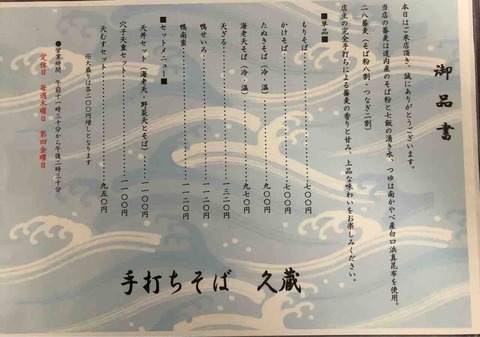 御品書
本日はご来店頂き、誠にありがとうございます。
当店の蕎麦は道内産のそば粉と七飯の湧き水、つゆは南かやべ産白口浜真昆布を使用。
二八蕎麦（そば粉八割・つなぎ二割）
店主の完全手打ちによる蕎麦の香りと甘み、上品な味わいをお楽しみください。
■単品■
もりそば………………七〇〇円
かけそば………………七〇〇円
たぬきそば（冷・温）………九〇〇円
海老天そば（冷・温）………九七〇円
天ざる………………一三二〇円
鴨せいろ………………一一二〇円
鴨南蛮………………一一二〇円
■セットメニュー■
天丼セット（海老天、野菜天とそば）………一一〇〇円
穴子天重セット………………一一〇〇円
天むすセット………………九五〇円
※大盛りは各二〇〇円増しとなります
●営業時間　午前十一時三十分から午後二時三十分
定休日　毎週木曜日　第四金曜日
手打ちそば　久蔵